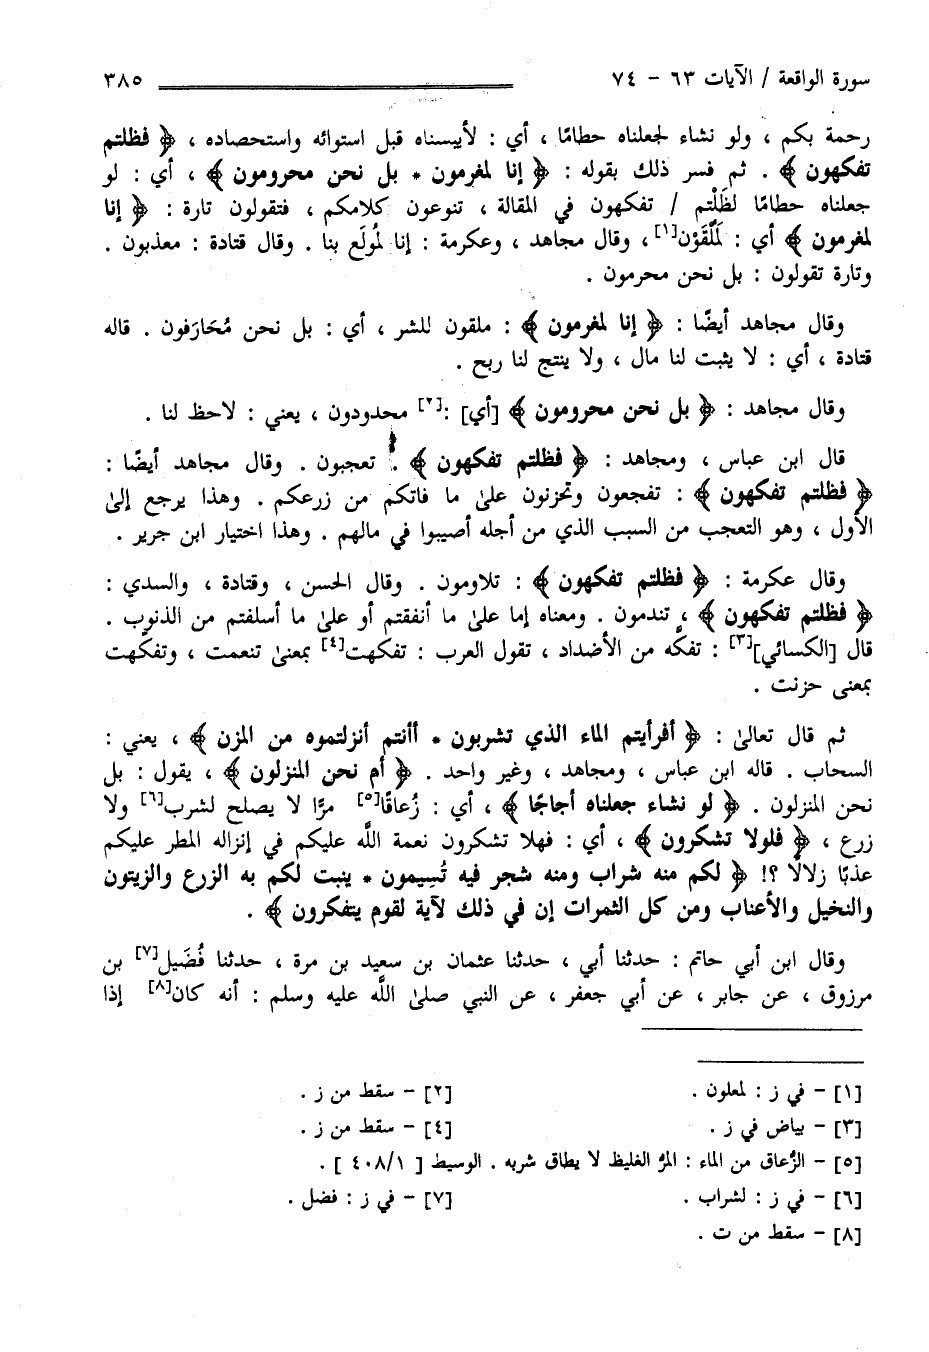 سورة الواقعة / الآيات ٦٣ - ٧٤ ٣٨٥
رحمة بكم ، ولو نشاء لجعلناه حطامًا ، أي : لأيبسناه قبل استوائه واستحصاده ، ﴿ فظلتم
تفكهون ﴾ . ثم فسر ذلك بقوله : ﴿ إنا لمغرمون * بل نحن محرومون ﴾ ، أي : لو
جعلناه حطامًا لظَلْتم / تفكهون في المقالة ، تنوعون كلامكم ، فتقولون تارة : ﴿ إنا
لمغرمون ﴾ أي : لَمُلْقَوْن[١] ، وقال مجاهد ، وعكرمة : إنا لمُولَع بنا . وقال قتادة : معذبون .
وتارة تقولون : بل نحن محرمون .
وقال مجاهد أيضًا : ﴿ إنا لمغرمون ﴾ : ملقون للشر ، أي : بل نحن مُحَارَفون . قاله
قتادة ، أي : لا يثبت لنا مال ، ولا ينتج لنا ربح .
وقال مجاهد : ﴿ بل نحن محرومون ﴾ [أي] :[٢] محدودون ، يعني : لاحظ لنا .
قال ابن عباس ، ومجاهد : ﴿ فظلتم تفكهون ﴾ : تعجبون . وقال مجاهد أيضًا :
﴿ فظلتم تفكهون ﴾ : تفجعون وتحزنون علىٰ ما فاتكم من زرعكم . وهذا يرجع إلىٰ
الأول ، وهو التعجب من السبب الذي من أجله أصيبوا في مالهم . وهذا اختيار ابن جرير .
وقال عكرمة : ﴿ فظلتم تفكهون ﴾ : تلاومون . وقال الحسن ، وقتادة ، والسدي :
﴿ فظلتم تفكهون ﴾ ، تندمون . ومعناه إما علىٰ ما أنفقتم أو علىٰ ما أسلفتم من الذنوب .
قال [الكسائي][٣] : تفكَّه من الأضداد ، تقول العرب : تفكهت[٤] بمعنىٰ تنعمت ، وتفكَّهت
بمعنى حزنت .
ثم قال تعالىٰ : ﴿ أفرأيتم الماء الذي تشربون * أأنتم أنزلتموه من المزن ﴾ ، يعني :
السحاب . قاله ابن عباس ، ومجاهد ، وغير واحد . ﴿ أم نحن المنزلون ﴾ ، يقول : بل
نحن المنزلون . ﴿ لو نشاء جعلناه أجاجًا ﴾ ، أي : زُعاقًا[٥] مرًّا لا يصلح لشرب[٦] ولا
زرع ، ﴿ فلولا تشكرون ﴾ ، أي : فهلا تشكرون نعمة اللَّه عليكم في إنزاله المطر عليكم
عذبًا زلالًا ؟! ﴿ لكم منه شراب ومنه شجر فيه تُسِيمون * ينبت لكم به الزرع والزيتون
والنخيل والأعناب ومن كل الثمرات إن في ذلك لآية لقوم يتفكرون ﴾ .
وقال ابن أبي حاتم : حدثنا أبي ، حدثنا عثمان بن سعيد بن مرة ، حدثنا فُضَيل[٧] بن
مرزوق ، عن جابر ، عن أبي جعفر ، عن النبي صلىٰ اللَّه عليه وسلم : أنه كان[٨] إذا
[١] - في ز : لمعلون . [٢] - سقط من ز .
[٣] - بياض في ز . [٤] - سقط من ز .
[٥] - الزُّعاق من الماء : المرُّ الغليظ لا يطاق شربه . الوسيط [ ٤٠٨/١ ] .
[٦] - في ز : لشراب . [٧] - في ز : فضل .
[٨] - سقط من ت .